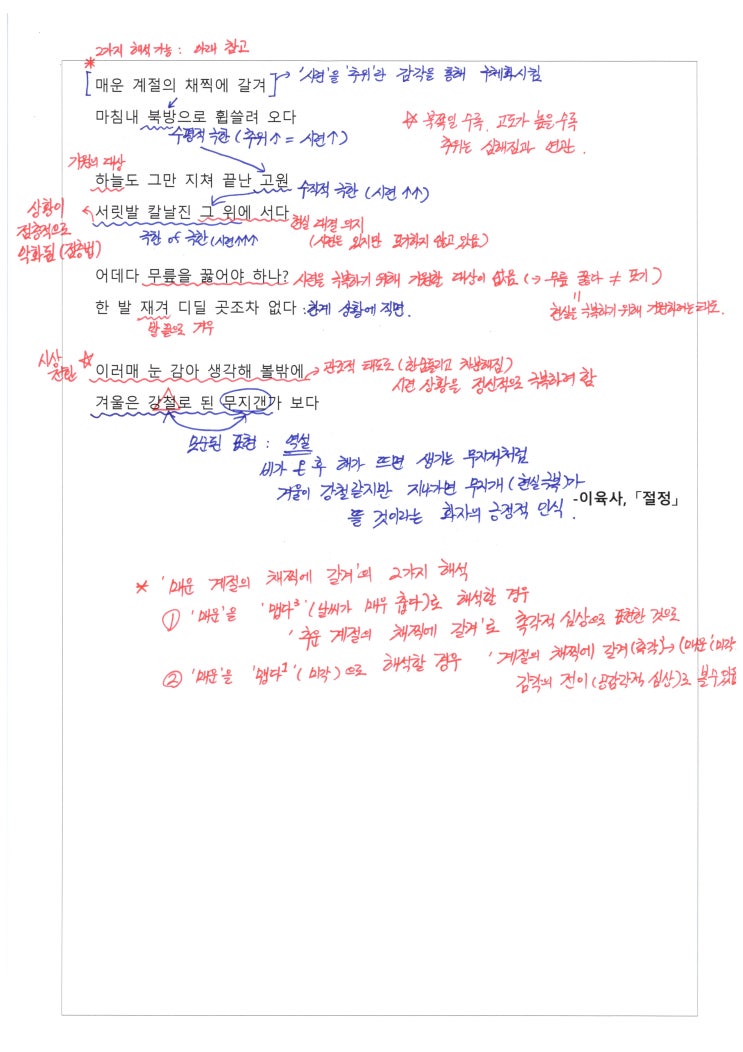 2가지 해석 가능 : 아래 참고
*
[매운 계절의 채찍에 갈겨] → '시련'을 '추위'란 감각을 통해 구체화시킴
마침내 북방으로 휩쓸려 오다
수평적 극한 (추위↑ = 시련↑)
☆ 북쪽일 수록, 고도가 높을수록
추위는 심해짐과 연관.
기원의 대상
하늘도 그만 지쳐 끝난 고원
수직적 극한 (시련 ↑↑)
서릿발 칼날진 그 위에 서다
상황이
점층적으로
악화됨 (점층법)
극한 of 극한 (시련↑↑↑)
현실 대결 의지
(시련은 있지만 포기하지 않고 있음)
어데다 무릎을 꿇어야 하나?
시련을 극복하기 위해 기원할 대상이 없음 (→ 무릎 꿇다 ≠ 포기)
=
현실을 극복하기 위해 기원하려는 태도.
한 발 재겨 디딜 곳조차 없다 : 한계 상황에 직면.
발 끝으로 겨우
시상 ☆
전환
이러매 눈 감아 생각해 볼밖에 → 관조적 태도로 (한숨돌리고 차분해짐)
시련 상황을 정신적으로 극복하려 함
겨울은 강철로 된 무지갠가 보다
모순된 표현 : 역설
비가 온 후 해가 뜨면 생기는 무지개처럼
겨울이 강철같지만 지나가면 무지개 (현실극복)가
뜰 것이라는 화자의 긍정적 인식.
-이육사, 「절정」
* '매운 계절의 채찍에 갈겨'의 2가지 해석
① '매운'을 '맵다³' (날씨가 매우 춥다)로 해석할 경우
'추운 계절의 채찍에 갈겨'로 촉각적 심상으로 표현한 것으로
② '매운'을 '맵다¹' (미각) 으로 해석할 경우 '계절의 채찍에 갈겨 (촉각)' → ('매운' (미각
감각의 전이 (공감각적 심상)로 볼수있음